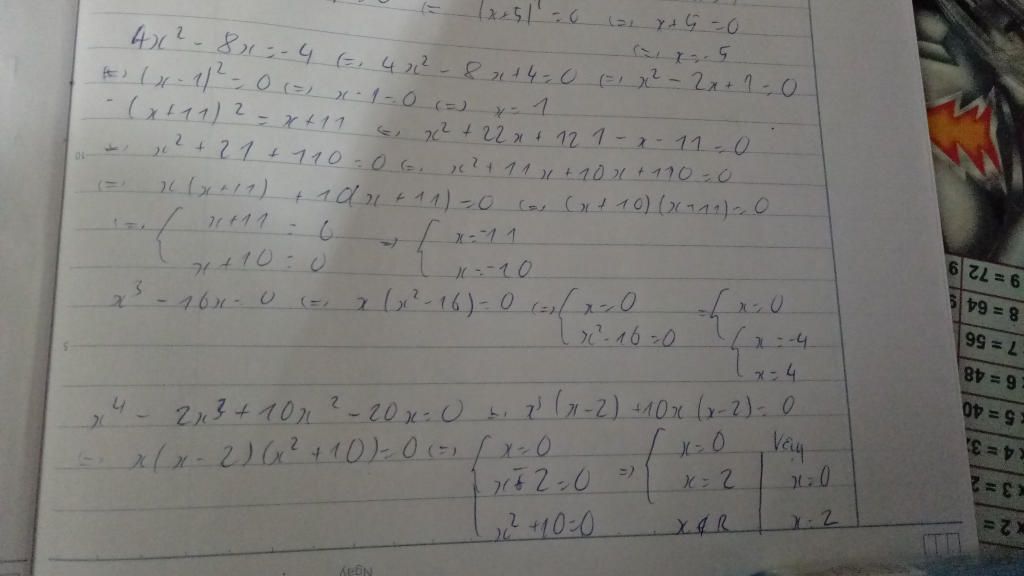 (x+5)² = 0 (=) x+5=0
(=) x=-5
4x² - 8x = -4 (=) 4x² - 8x + 4 = 0 (=) x² - 2x + 1 = 0
(=) (x-1)² = 0 (=) x-1=0 (=) x=1
(x+11)² = x+11 (=) x² + 22x + 121 - x - 11 = 0
(=) x² + 21 + 110 = 0 (=) x² + 11x + 10x + 110 = 0
(=) x(x+11) + 10(x+11) = 0 (=) (x+10)(x+11) = 0
(=) { x+11 = 0 => { x=-11
x+10 = 0 x=-10
x³ - 16x = 0 (=) x(x²-16) = 0 (=) { x=0 = { x=0
x²-16=0 { x=-4
x=4
x⁴ - 2x³ + 10x² - 20x = 0 (=) x³(x-2) + 10x(x-2) = 0
(=) x(x-2)(x²+10)=0 (=) { x=0 => { x=0 | Vậy
x-2=0 x=2 | x=0
x²+10=0 x∉R | x=2
Ngày
9 = 72
8 = 64
7 = 56
6 = 48
5 = 40
x 4 = 32
x 3 = 2
x 2 =